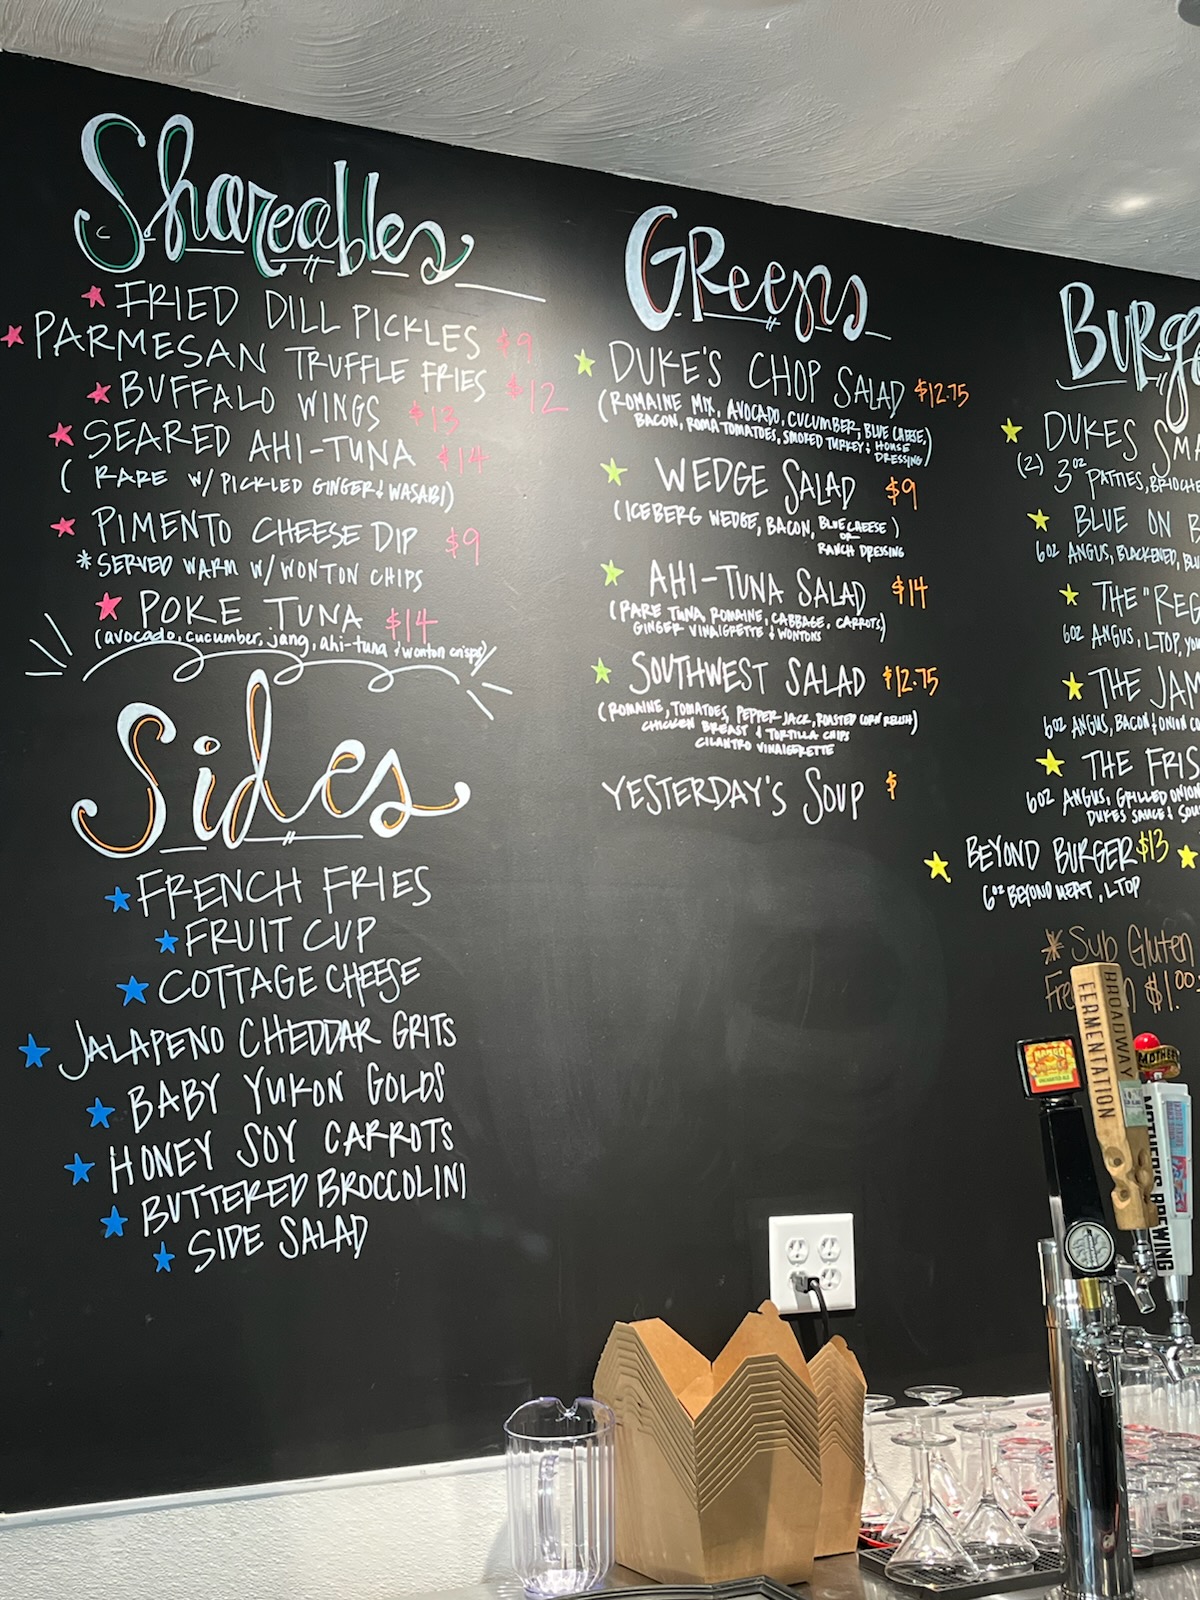 Shareables
FRIED DILL PICKLES $9
PARMESAN TRUFFLE FRIES $12
BUFFALO WINGS $13
SEARED AHI-TUNA $14
( RARE W/ PICKLED GINGER & WASABI)
PIMENTO CHEESE DIP $9
*SERVED WARM W/ WONTON CHIPS
POKE TUNA $14
(avocado, cucumber, jang, ahi-tuna & wonton crisps)
Sides
FRENCH FRIES
FRUIT CUP
COTTAGE CHEESE
JALAPENO CHEDDAR GRITS
BABY YUKON GOLDS
HONEY SOY CARROTS
BUTTERED BROCCOLINI
SIDE SALAD
GReens
DUKE'S CHOP SALAD $12.75
(ROMAINE MIX, AVOCADO, CUCUMBER, BLUE CHEESE,
BACON, ROMA TOMATOES, SMOKED TURKEY & HOUSE
DRESSING)
WEDGE SALAD $9
(ICEBERG WEDGE, BACON, BLUE CHEESE )
OR
RANCH DRESSING
AHI-TUNA SALAD $14
(RARE TUNA, ROMAINE, CABBAGE, CARROTS)
GINGER VINAIGRETTE & WONTONS
SOUTHWEST SALAD $12.75
(ROMAINE, TOMATOES, PEPPER JACK, ROASTED CORN RELISH)
CHICKEN BREAST & TORTILLA CHIPS
CILANTRO VINAIGRETTE
YESTERDAY'S SOUP $
BURge
DUKES SMA
(2) 3oz PATTIES, BRIOCHE
BLUE ON B
6oz ANGUS, BLACKENED, BLU
THE "REG
6oz ANGUS, LTOP, YO
THE JAM
6oz ANGUS, BACON & ONION
THE FRIS
6oz ANGUS, GRILLED ONION
DUKES SAUCE & SOU
BEYOND BURGER $13
6oz BEYOND MEAT, LTOP
* Sub Gluten
$1.00
BROADWAY
FERMENTATION
MANGO
MOTHER'S
MOTHER'S BREWING